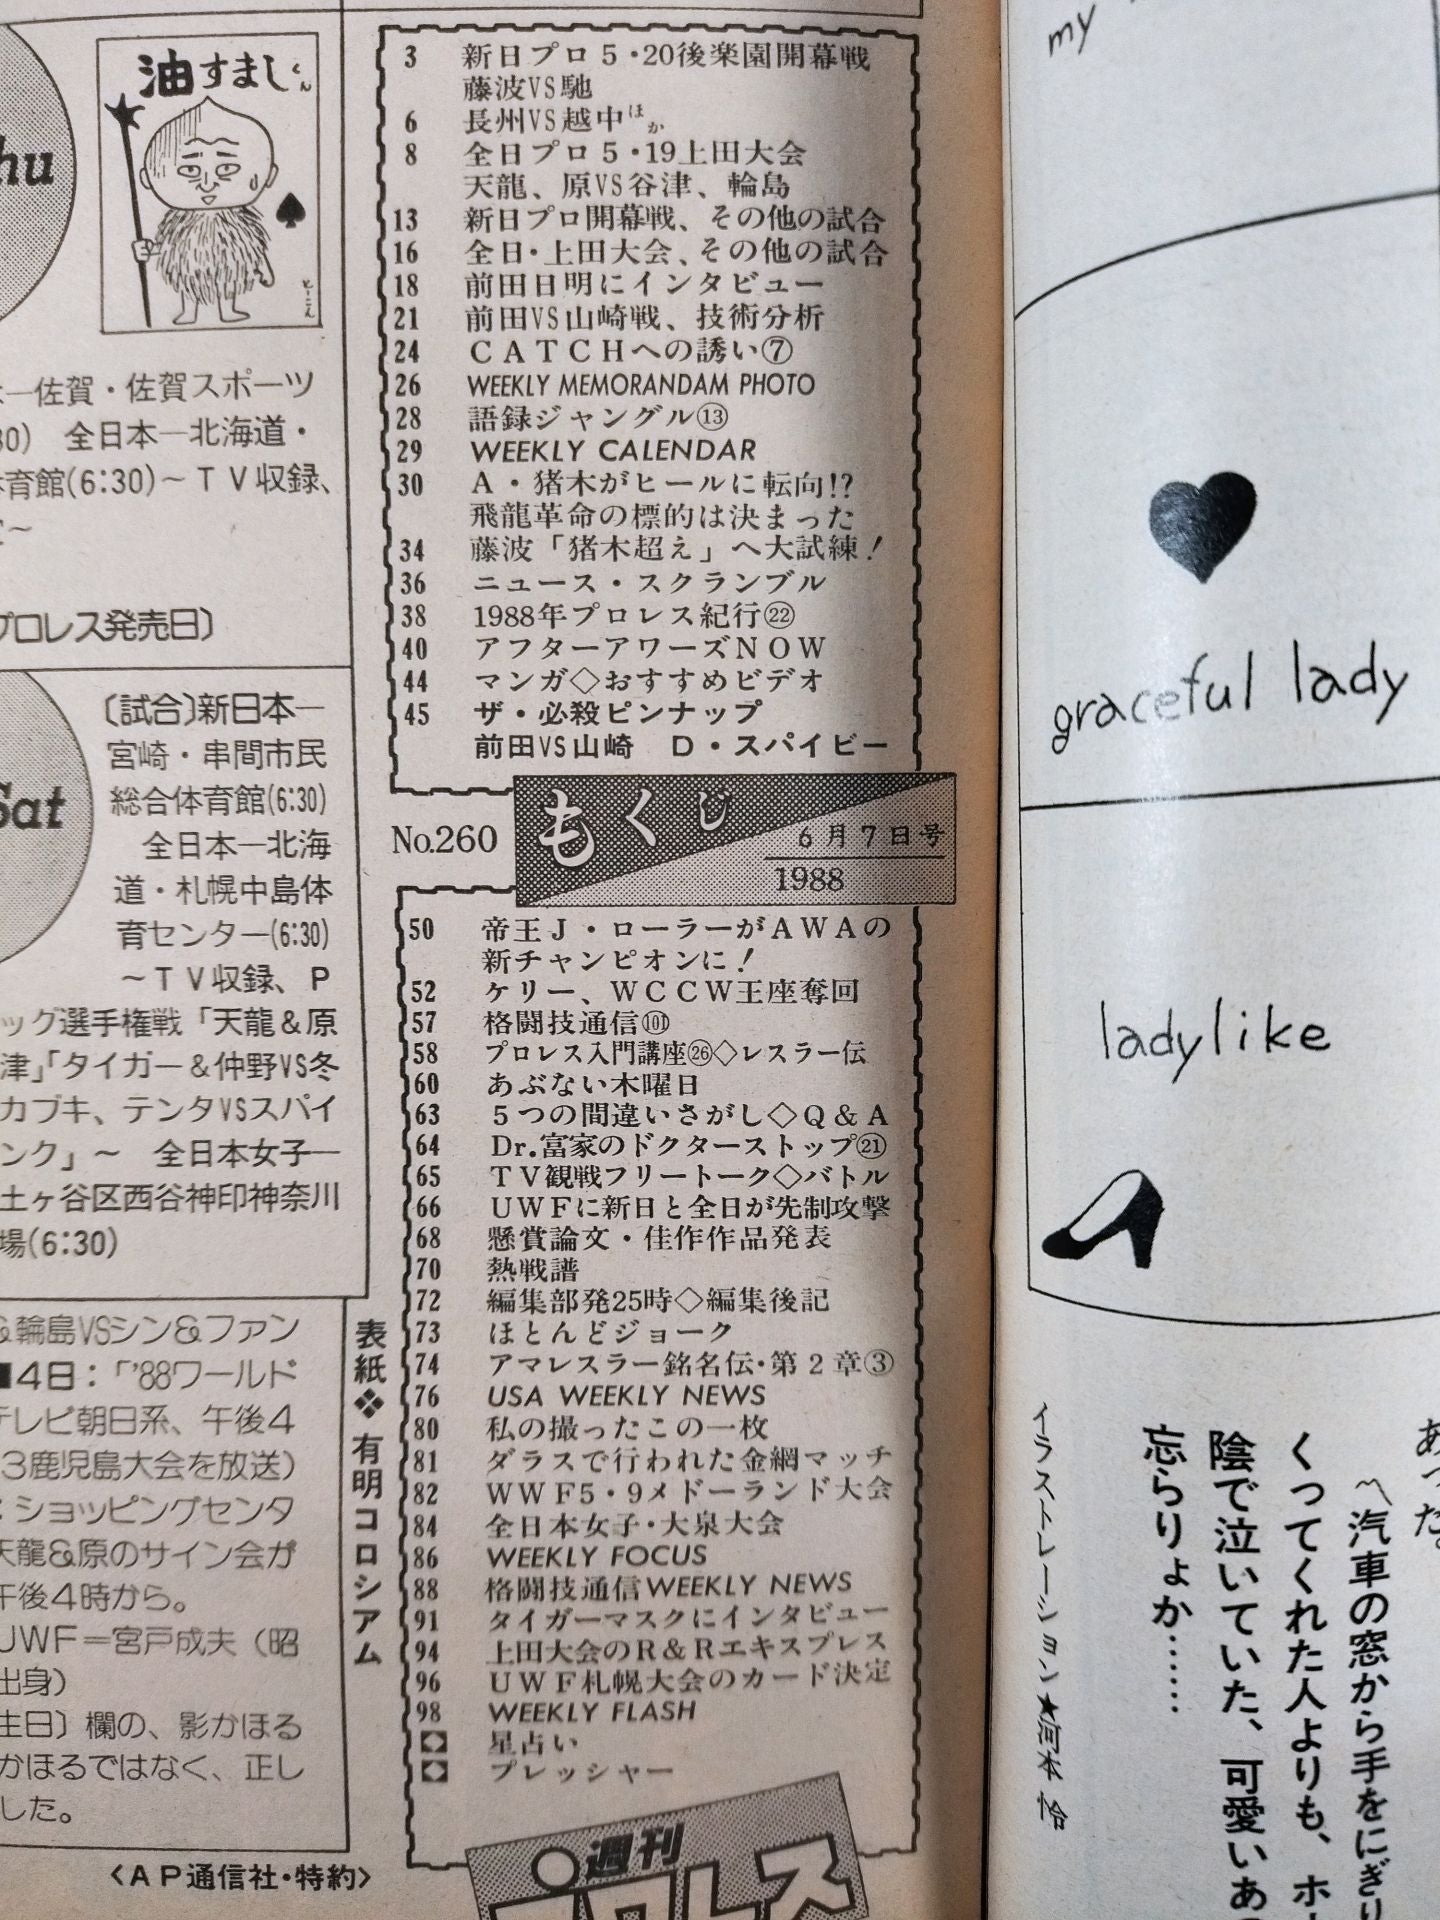 油すましくん
hu
ー佐賀・佐賀スポーツ
30) 全日本ー北海道・
育館(6:30)~TV収録、
プロレス発売日〕
Sat
〔試合〕新日本ー
宮崎・串間市民
総合体育館(6:30)
全日本ー北海
道・札幌中島体
育センター(6:30)
~TV収録、P
ッグ選手権戦「天龍&原
津」「タイガー&仲野VS冬
カブキ、テンタVSスパイ
ンク」~ 全日本女子ー
土ヶ谷区西谷神印神奈川
場(6:30)
&輪島VSシン&ファン
■4日:「'88ワールド
テレビ朝日系、午後4
3鹿児島大会を放送)
ショッピングセンタ
天龍&原のサイン会が
午後4時から。
UWF=宮戸成夫(昭
出身)
生日〕欄の、影かほる
かほるではなく、正し
した。
〈AP通信社・特約〉
3 新日プロ5・20後楽園開幕戦
藤波VS馳
6 長州VS越中ほか
8 全日プロ5・19上田大会
天龍、原VS谷津、輪島
13 新日プロ開幕戦、その他の試合
16 全日・上田大会、その他の試合
18 前田日明にインタビュー
21 前田VS山崎戦、技術分析
24 CATCHへの誘い⑦
26 WEEKLY MEMORANDAM PHOTO
28 語録ジャングル⑬
29 WEEKLY CALENDAR
30 A・猪木がヒールに転向!?
飛龍革命の標的は決まった
34 藤波「猪木超え」へ大試練!
36 ニュース・スクランブル
38 1988年プロレス紀行㉒
40 アフターアワーズNOW
44 マンガ◇おすすめビデオ
45 ザ・必殺ピンナップ
前田VS山崎 D・スパイビー
No.260
もくじ
6月7日号
1988
50 帝王J・ローラーがAWAの
新チャンピオンに!
52 ケリー、WCCW王座奪回
57 格闘技通信(101)
58 プロレス入門講座㉖◇レスラー伝
60 あぶない木曜日
63 5つの間違いさがし◇Q&A
64 Dr.富家のドクターストップ㉑
65 TV観戦フリートーク◇バトル
66 UWFに新日と全日が先制攻撃
68 懸賞論文・佳作作品発表
70 熱戦譜
72 編集部発25時◇編集後記
73 ほとんどジョーク
74 アマレスラー銘名伝・第2章③
76 USA WEEKLY NEWS
80 私の撮ったこの一枚
81 ダラスで行われた金網マッチ
82 WWF5・9メドーランド大会
84 全日本女子・大泉大会
86 WEEKLY FOCUS
88 格闘技通信WEEKLY NEWS
91 タイガーマスクにインタビュー
94 上田大会のR&Rエキスプレス
96 UWF札幌大会のカード決定
98 WEEKLY FLASH
星占い
プレッシャー
表紙❖有明コロシアム
週刊
プロレス
my
graceful lady
ladylike
あった。
〽汽車の窓から手をにぎり
くってくれた人よりも、ホ
陰で泣いていた、可愛いあ
忘らりょか……
イラストレーション★河本